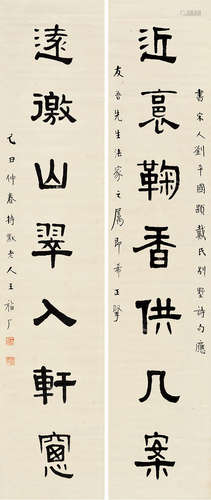 書宋人劉平國題戴氏別墅詩句應
近裛鞠香供几案
友吾先生法家之屬即希正
遠徼山翠入軒窻
仲春持默老人王福厂